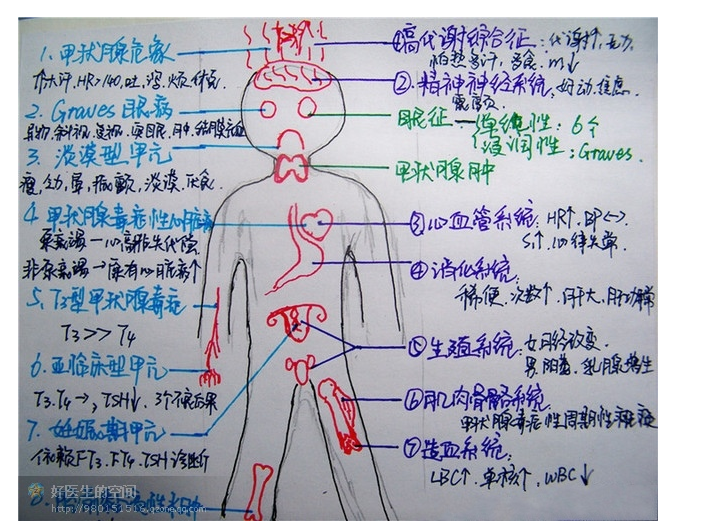 1. 甲状腺危象
大汗, HR>140, 吐, 泻
2. Graves 眼病
3. 淡漠型甲亢
淡漠, 厌食
4. 甲状腺毒症性心脏病
5. T3型甲状腺毒症
T3 >> T4
6. 亚临床型甲亢
T3. T4→, TSH↓, 3个不良后果
7. 妊娠期甲亢
依赖FT3. FT4. TSH 诊断
8.
①高代谢综合征: 代谢↑, 乏力,
怕热多汗, 多食, m↓
②. 精神神经系统: 好动, 焦虑
眼征 — 单纯性: 6个
浸润性: Graves.
甲状腺肿
③心血管系统: HR↑, BP<->,
S1↑, 心律失常.
④ 消化系统:
稀便, 次数↑, 肝大, 肝功异常
⑤生殖系统: 女月经改变
男阳萎, 乳腺增生
⑥肌肉骨骼系统.
甲状腺毒症性周期性
⑦造血系统:
LBC↑, 单核↑, WBC↓
好医生的空间
http://980151516.qzone.qq.com